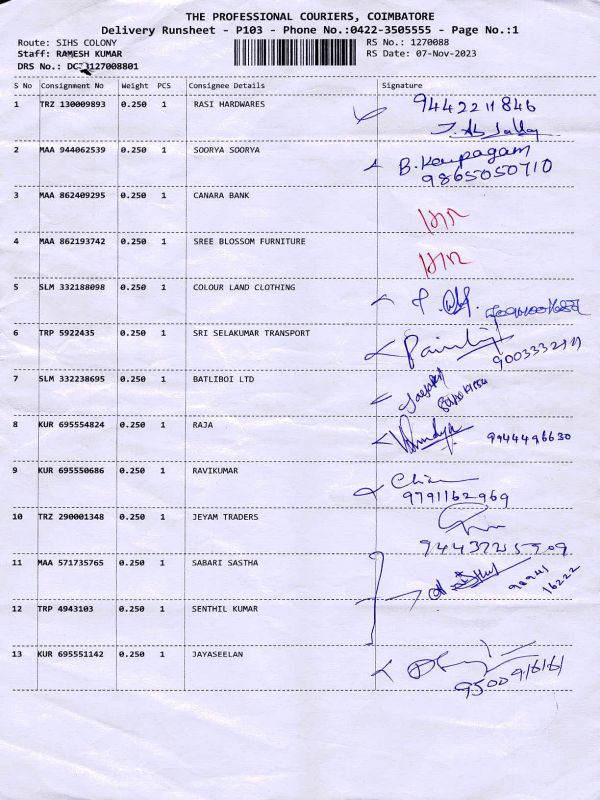 THE PROFESSIONAL COURIERS, COIMBATORE
Delivery Runsheet - P103 - Phone No.:0422-3505555 - Page No.:1
Route: SIHS COLONY RS No.: 1270088
Staff: RAMESH KUMAR RS Date: 07-Nov-2023
DRS No.: 127008801
S No Consignment No Weight PCS Consignee Details Signature
1 TRZ 130009893 0.250 1 RASI HARDWARES 9442211846
2 MAA 944062539 0.250 1 SOORYA SOORYA B. Karpagam
9865050710
3 MAA 862409295 0.250 1 CANARA BANK
4 MAA 862193742 0.250 1 SREE BLOSSOM FURNITURE
5 SLM 332188098 0.250 1 COLOUR LAND CLOTHING
6 TRP 5922435 0.250 1 SRI SELAKUMAR TRANSPORT
7 SLM 332238695 0.250 1 BATLIBOI LTD
8 KUR 695554824 0.250 1 RAJA 9944496630
9 KUR 695550686 0.250 1 RAVIKUMAR
9791162969
10 TRZ 290001348 0.250 1 JEYAM TRADERS
11 MAA 571735765 0.250 1 SABARI SASTHA
12 TRP 4943103 0.250 1 SENTHIL KUMAR
13 KUR 695551142 0.250 1 JAYASEELAN